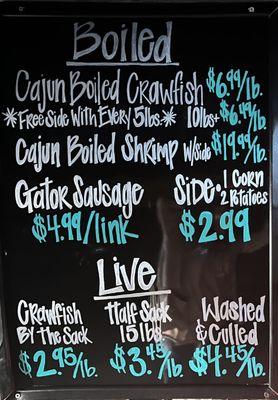 Boiled
Cajun Boiled Crawfish $6.99/lb.
*Free Side With Every 5lbs.* 10lbs+ $6.49/lb.
Cajun Boiled Shrimp w/side $19.99/lb.
Gator Sausage
$4.99/link
Side: 1 Corn
2 Potatoes
$2.99
Live
Crawfish
By The Sack
$2.95/lb.
Half Sack
15lbs.
$3.45/lb.
Washed
& Culled
$4.45/lb.